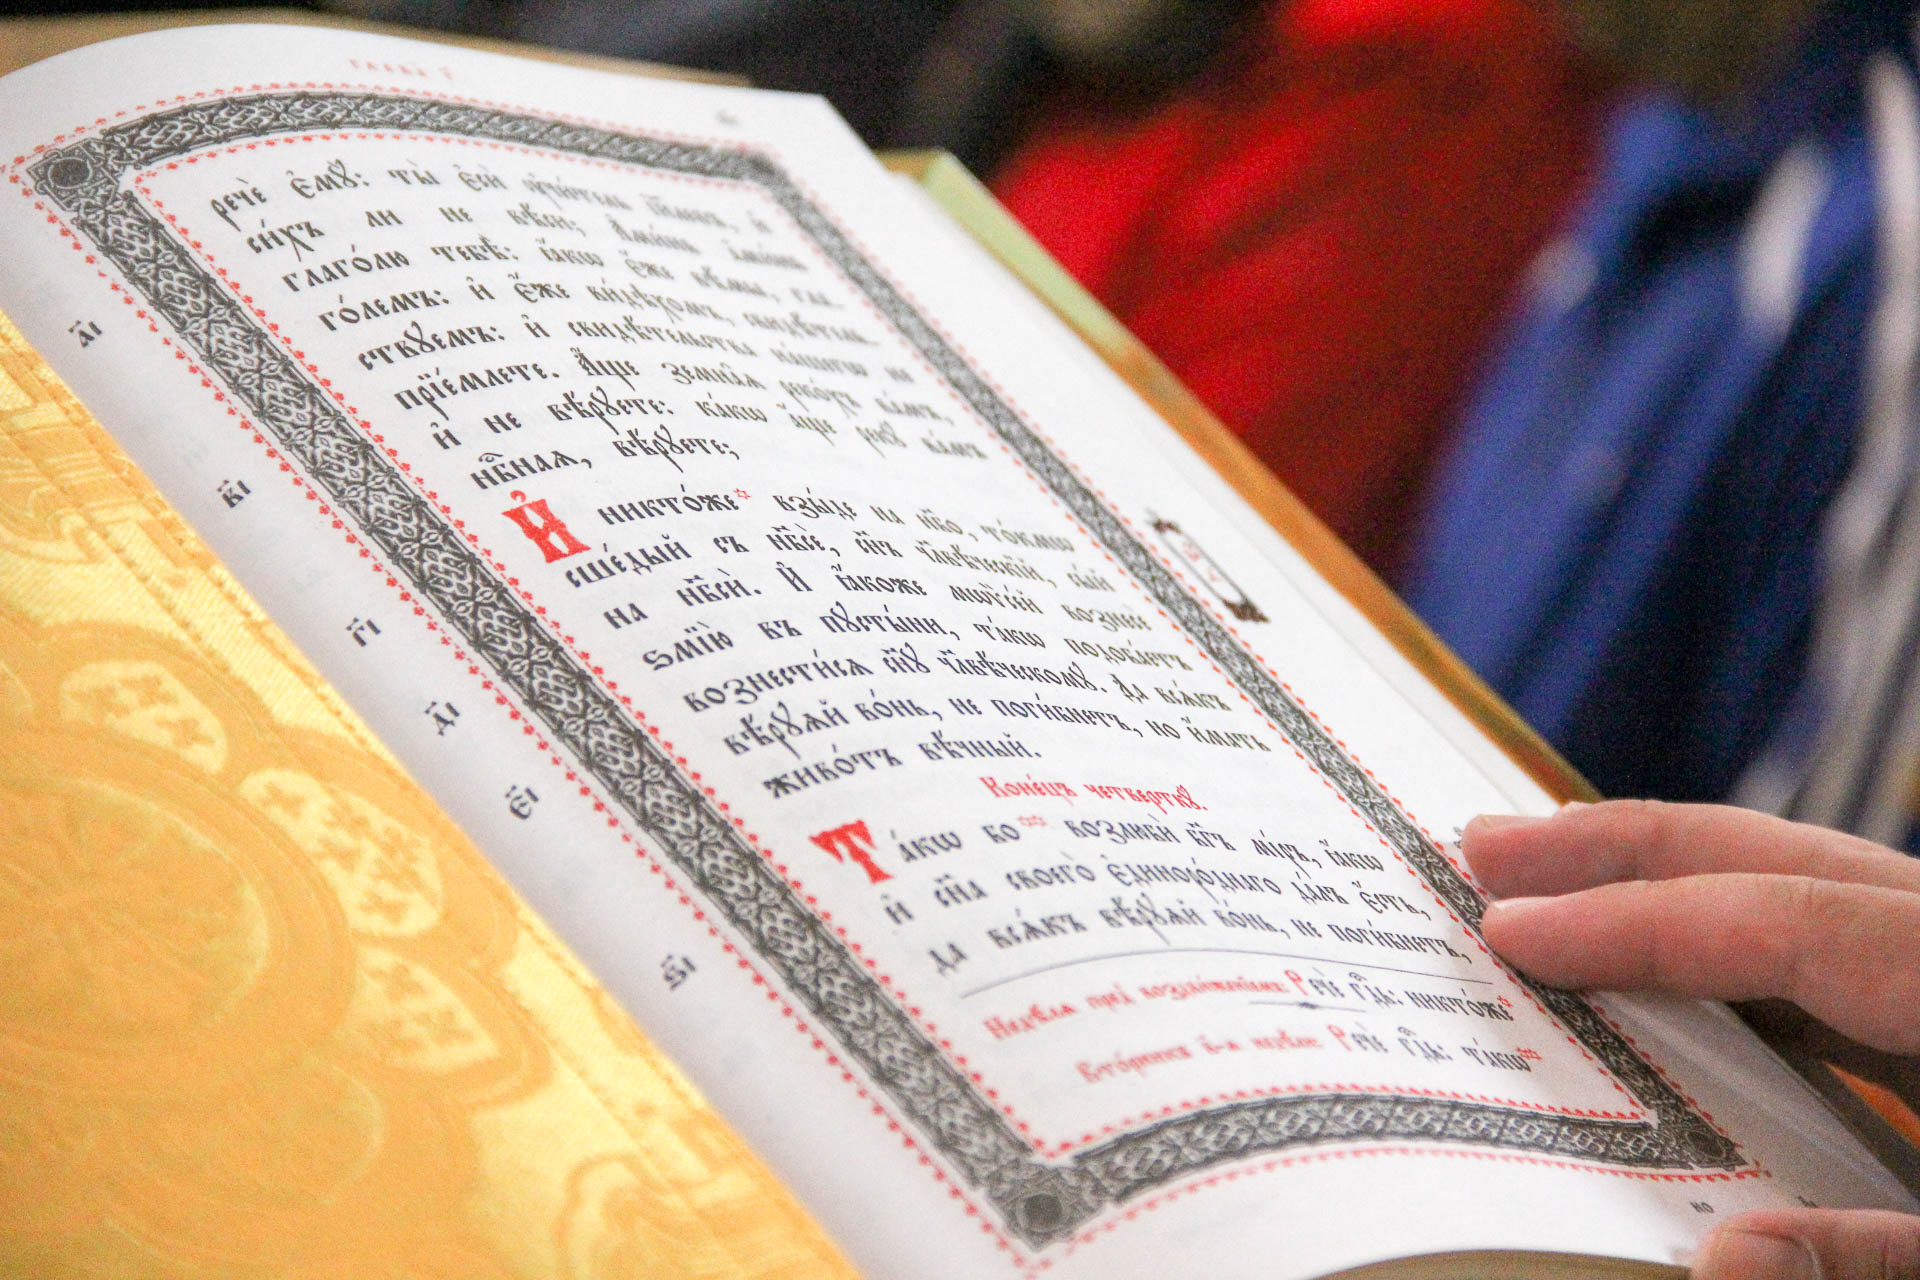 Глава г҃
речѐ є҆мꙋ̀: ты̀ є҆сѝ ᲂу҆чи́тель і҆и҃левъ, и҆
си́хъ ли не вѣ́си; А҆ми́нь а҆ми́нь
глаго́лю тебѣ̀: ꙗ҆́кѡ є҆́же вѣ́мы, гла-
го́лемъ: и҆ є҆́же ви́дѣхомъ, свидѣ́тель-
ствꙋемъ: и҆ свидѣ́тельства на́шегѡ не
прїе́млете. А҆́ще земна̑ѧ реко́хъ ва́мъ,
и҆ не вѣ́рꙋете: ка́кѡ а҆́ще рекꙋ̀ ва́мъ
нбⷭ҇наѧ, вѣ́рꙋете;
И҆ никто́же взы́де на нб҃о, то́кмѡ
сше́дый съ нб҃сѐ, сн҃ъ чл҃вѣ́ческїй, сы́й
на нб҃сѝ. И҆ ꙗ҆́коже мѡѷсе́й вознесѐ
ѕмїю̀ въ пꙋсты́ни, та́кѡ подоба́етъ
вознести́сѧ сн҃ꙋ чл҃вѣ́ческомꙋ. Да всѧ́къ
вѣ́рꙋѧй во́нь, не поги́бнетъ, но и҆́мать
живо́тъ вѣ́чный.
Коне́цъ четверткꙋ̀.
Та́кѡ бо возлюбѝ бг҃ъ мі́ръ, ꙗ҆́кѡ
и҆ сн҃а своего̀ є҆диноро́днаго да́лъ є҆́сть,
да всѧ́къ вѣ́рꙋѧй во́нь, не поги́бнетъ,
Недѣ́лѧ пред̾ воздви́женїемъ: Речѐ гдⷭ҇ь: никто́же
Вто́рникъ в҃-ѧ недѣ́ли: Речѐ гдⷭ҇ь: та́кѡ
но
а҃і
в҃і
г҃і
д҃і
є҃і
ѕ҃і